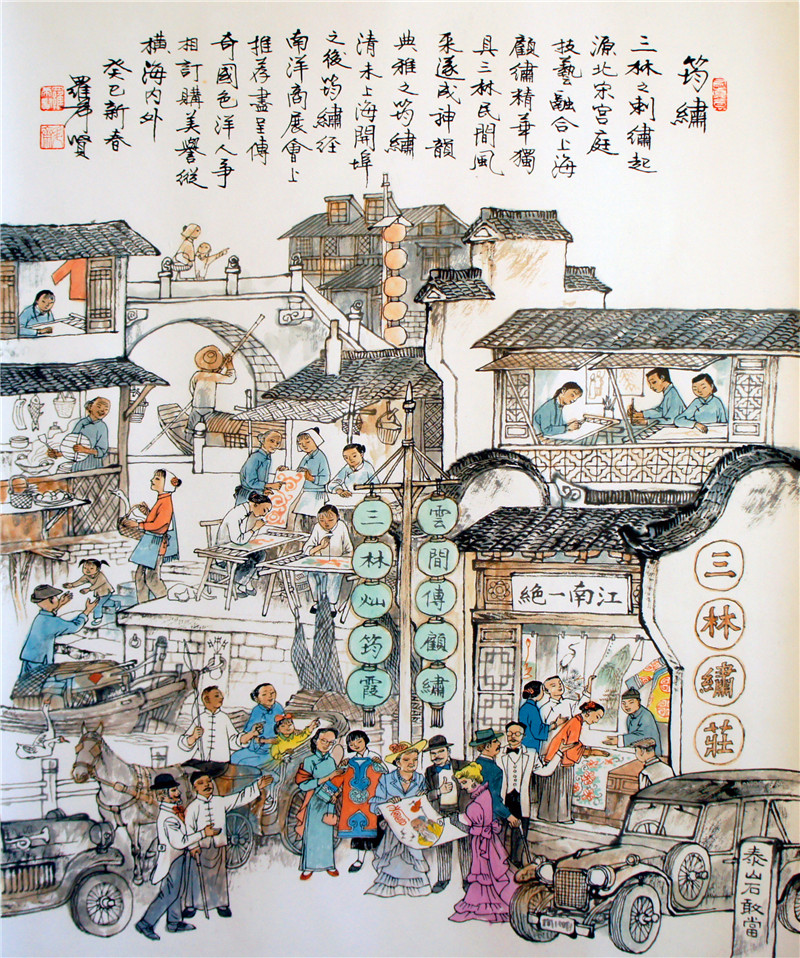 筠繡
三林之刺繡起
源北宋宮庭
技藝融合上海
顧繡精華獨
具三林民間風
采遂成神韻
典雅之筠繡
清未上海開埠
之後筠繡經
南洋商展會上
推荐盡呈傳
奇國色洋人爭
相訂購美譽縱
橫海内外
癸巳新春
羅希賢
雲間傳顧繡
三林灿筠霞
江南一絕
三林繡莊
泰山石敢當